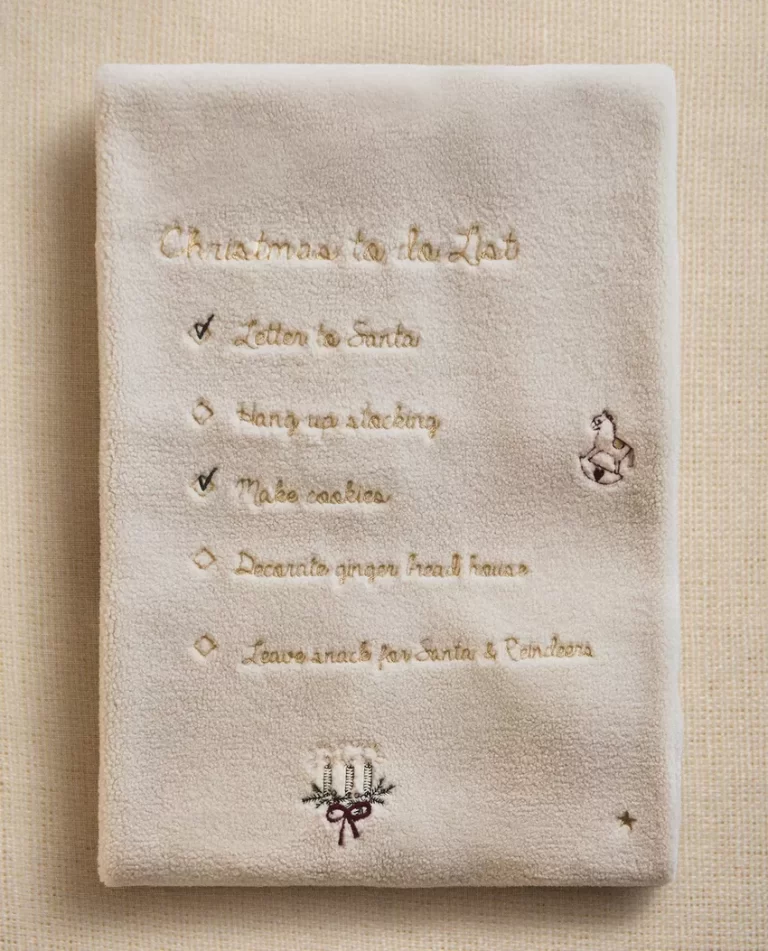 Christmas to do List
Letter to Santa
Hang up stocking
Make cookies
Decorate ginger bread house
Leave snack for Santa & Reindeers